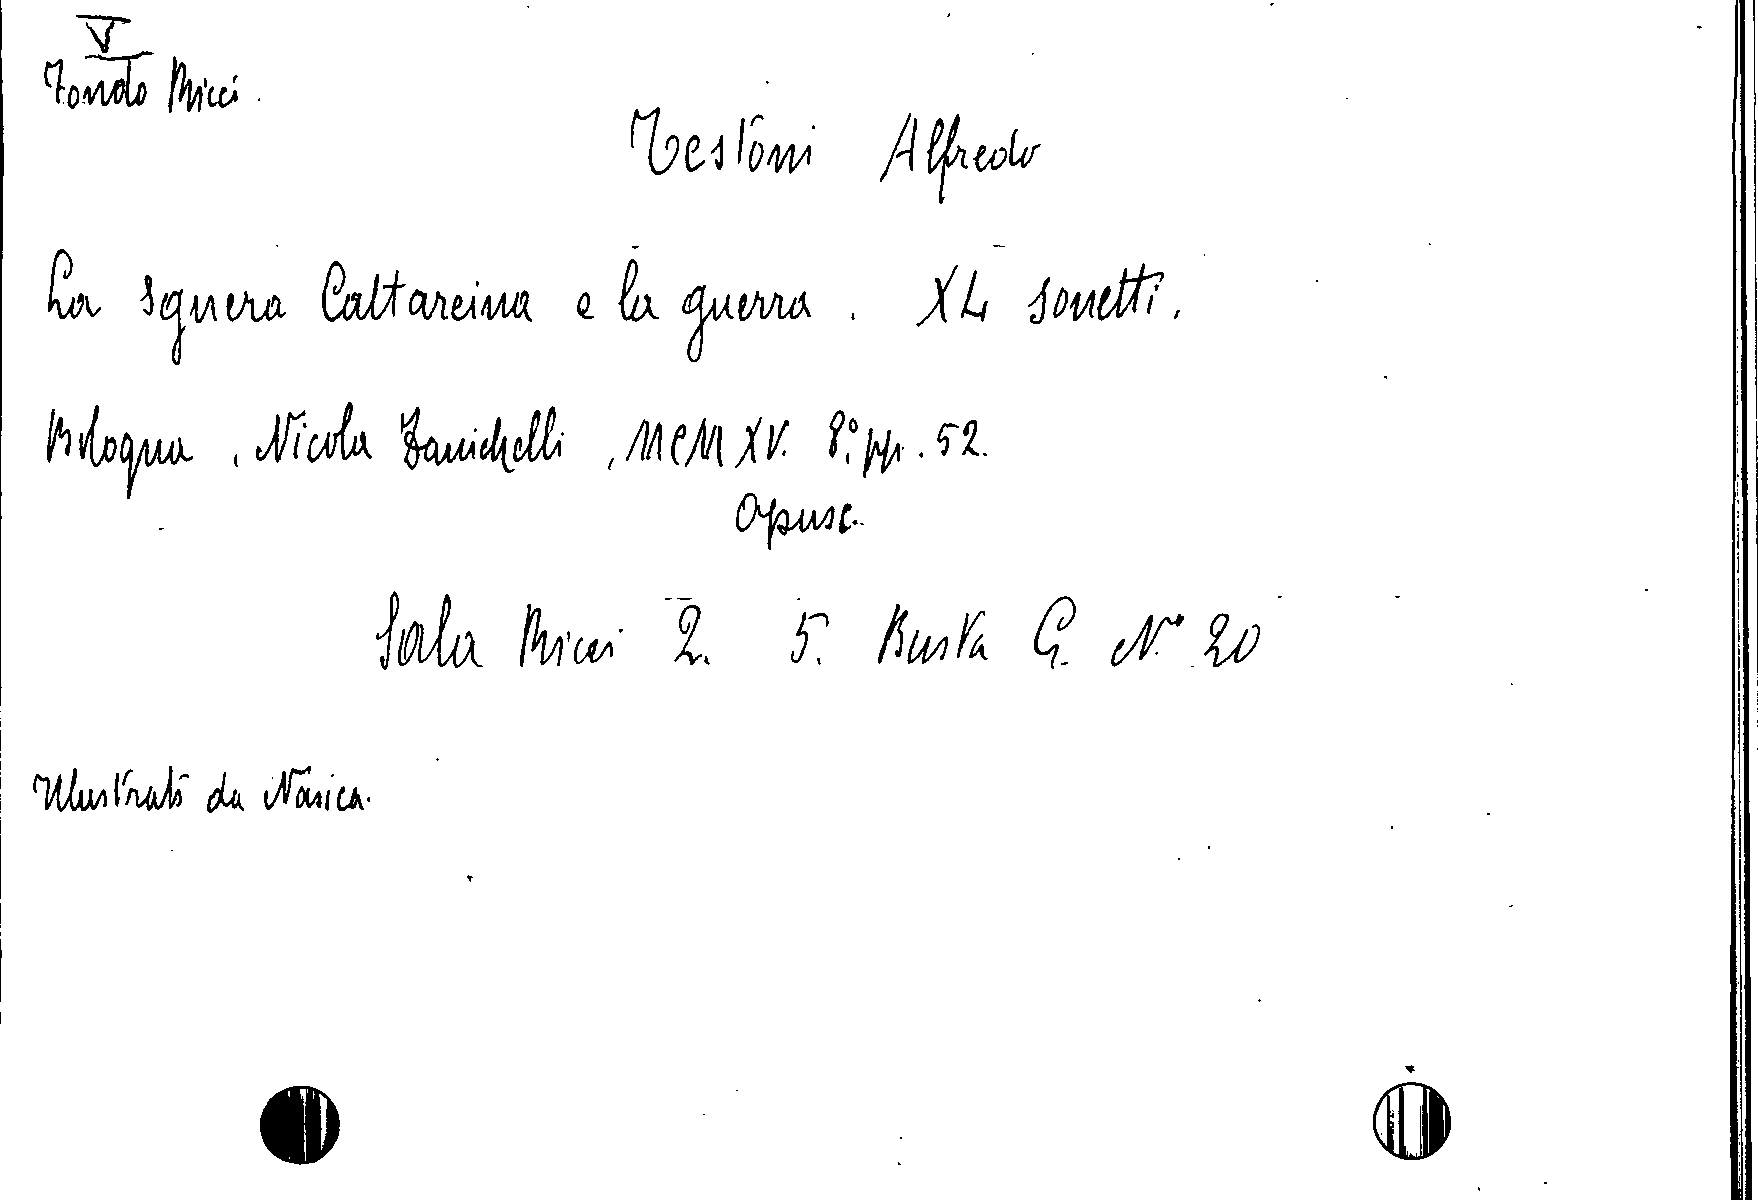 V
Fondo Ricci.
Testoni Alfredo
La sgnera Cattareina e la guerra. XL sonetti.
Bologna, Nicola Zanichelli, MCMXV. 8°. pp. 52.
Opusc.
Sala Ricci 2. 5. Busta G. N° 20
Illustrati da Nasica.